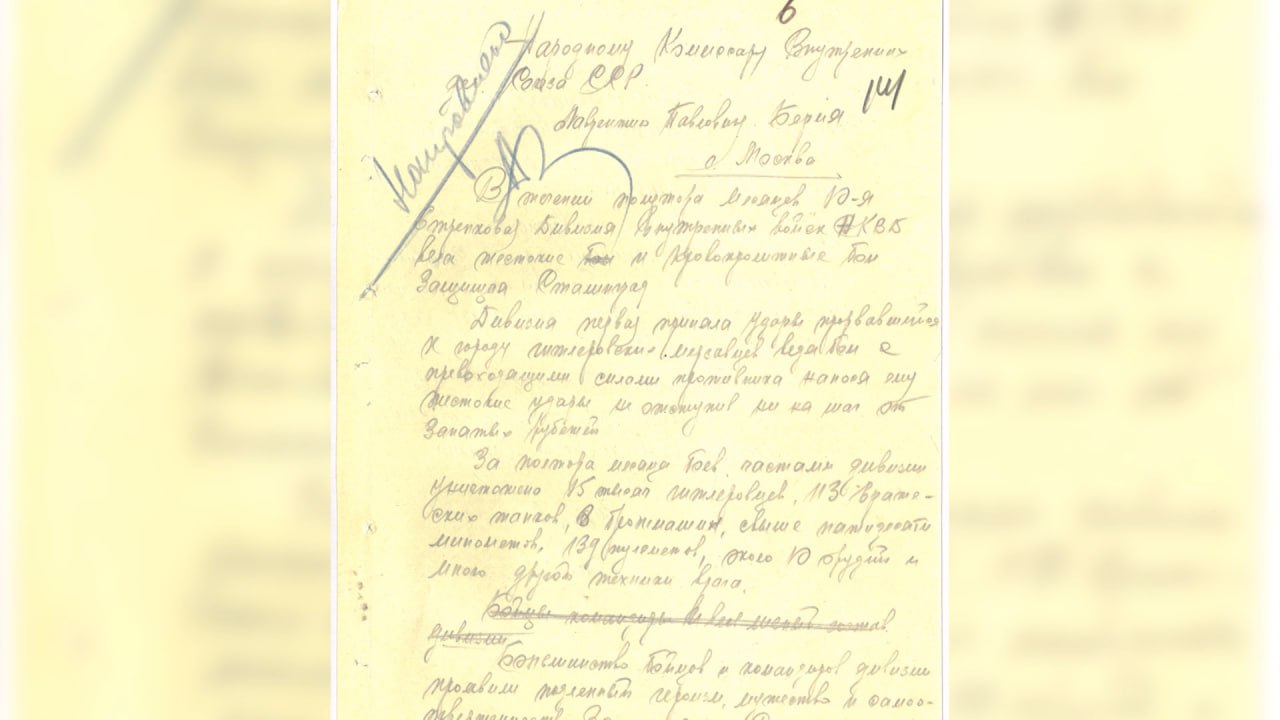 6
Народному Комиссару Внутренних
дел Союза ССР.
141
Лаврентию Павловичу Берия
г. Москва
В течении полтора месяцев 10-я
Стрелковая Дивизия Внутренних войск НКВД
вела жестокие бои и кровопролитные бои
защищая Сталинград
Дивизия первая приняла удары прорвавшейся
к городу гитлеровских мерзавцев ведя бои с
превоходящими силами противника нанося ему
жестокие удары не отступив ни на шаг от
занятых рубежей
За полтора месяца боев, частями дивизии
уничтожено 15 тысяч гитлеровцев, 113 вражес-
ских танков, 8 бронемашин, свыше пятидесяти
минометов, 139 пулеметов, около 10 орудий и
много другой техники врага.
Бойцы командиры и весь личный состав
дивизии
Большинство бойцов и командиров дивизии
проявили подлинный героизм, мужество и само-